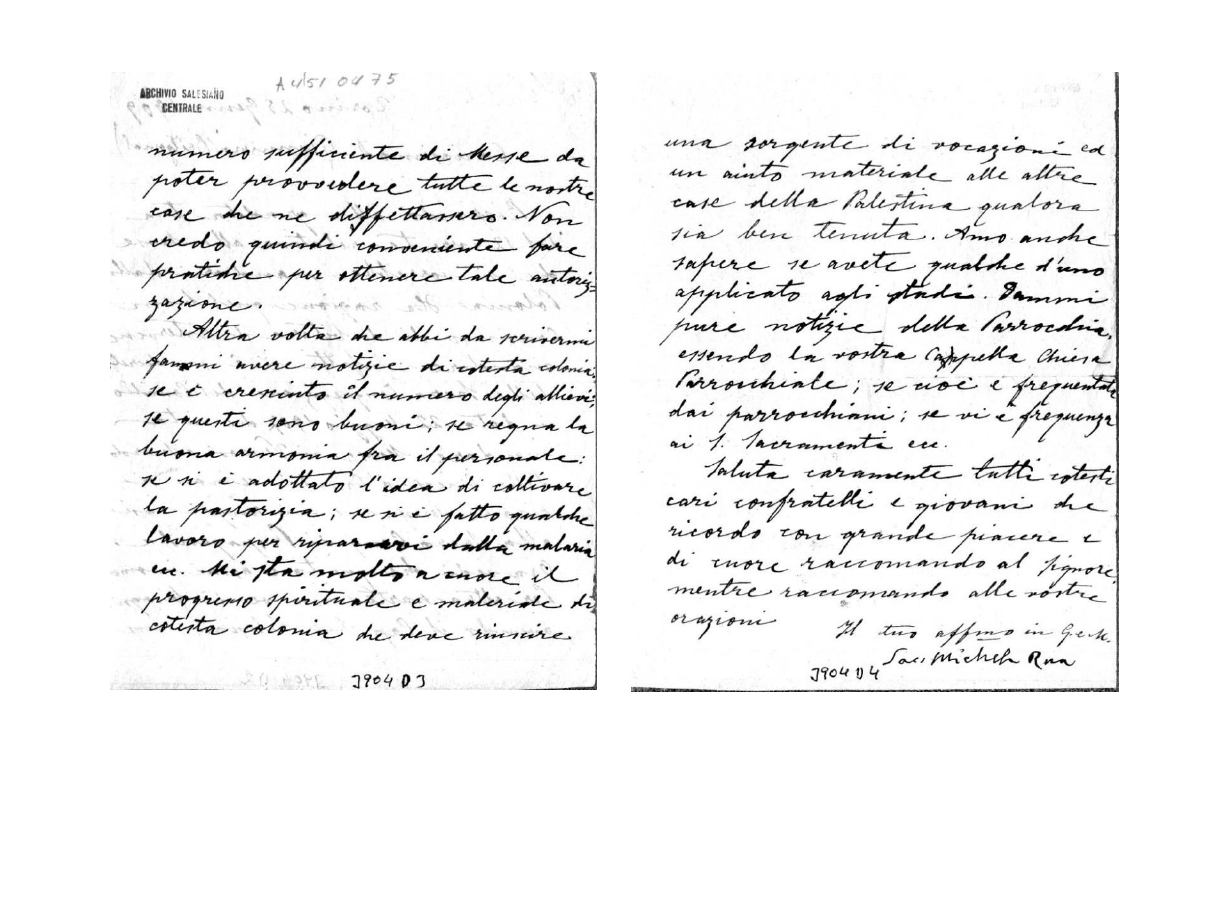 A 4510475
ARCHIVIO SALESIANO
CENTRALE
numero sufficiente di Messe da
poter provvedere tutte le nostre
case che ne diffettassero. Non
credo quindi conveniente fare
pratiche per ottenere tale autoriz=
zazione.
Altra volta che abbi da scrivermi
fammi avere notizie di cotesta colonia;
se è cresciuto il numero degli allievi;
se questi sono buoni; se regna la
buona armonia fra il personale:
se si è adottato l'idea di coltivare
la pastorizia; se si è fatto qualche
lavoro per ripararvi dalla malaria
ecc. Mi sta molto a cuore il
progresso spirituale e materiale di
cotesta colonia che deve riuscire
3904 D3
una sorgente di vocazioni ed
un aiuto materiale alle altre
case della Palestina qualora
sia ben tenuta. Amo anche
sapere se avete qualche d'uno
applicato agli studi. Dammi
pure notizie della Parrocchia,
essendo la vostra Cappella Chiesa
Parrocchiale; se cioè è frequentata
dai parrocchiani; se vi è frequenza
ai S. Sacramenti ecc.
Saluta caramente tutti cotesti
cari confratelli e giovani che
ricordo con grande piacere e
di cuore raccomando al Signore,
mentre raccomando alle vostre
orazioni
Il tuo affmo in G. e M.
Sac. Michele Rua
3904 D4